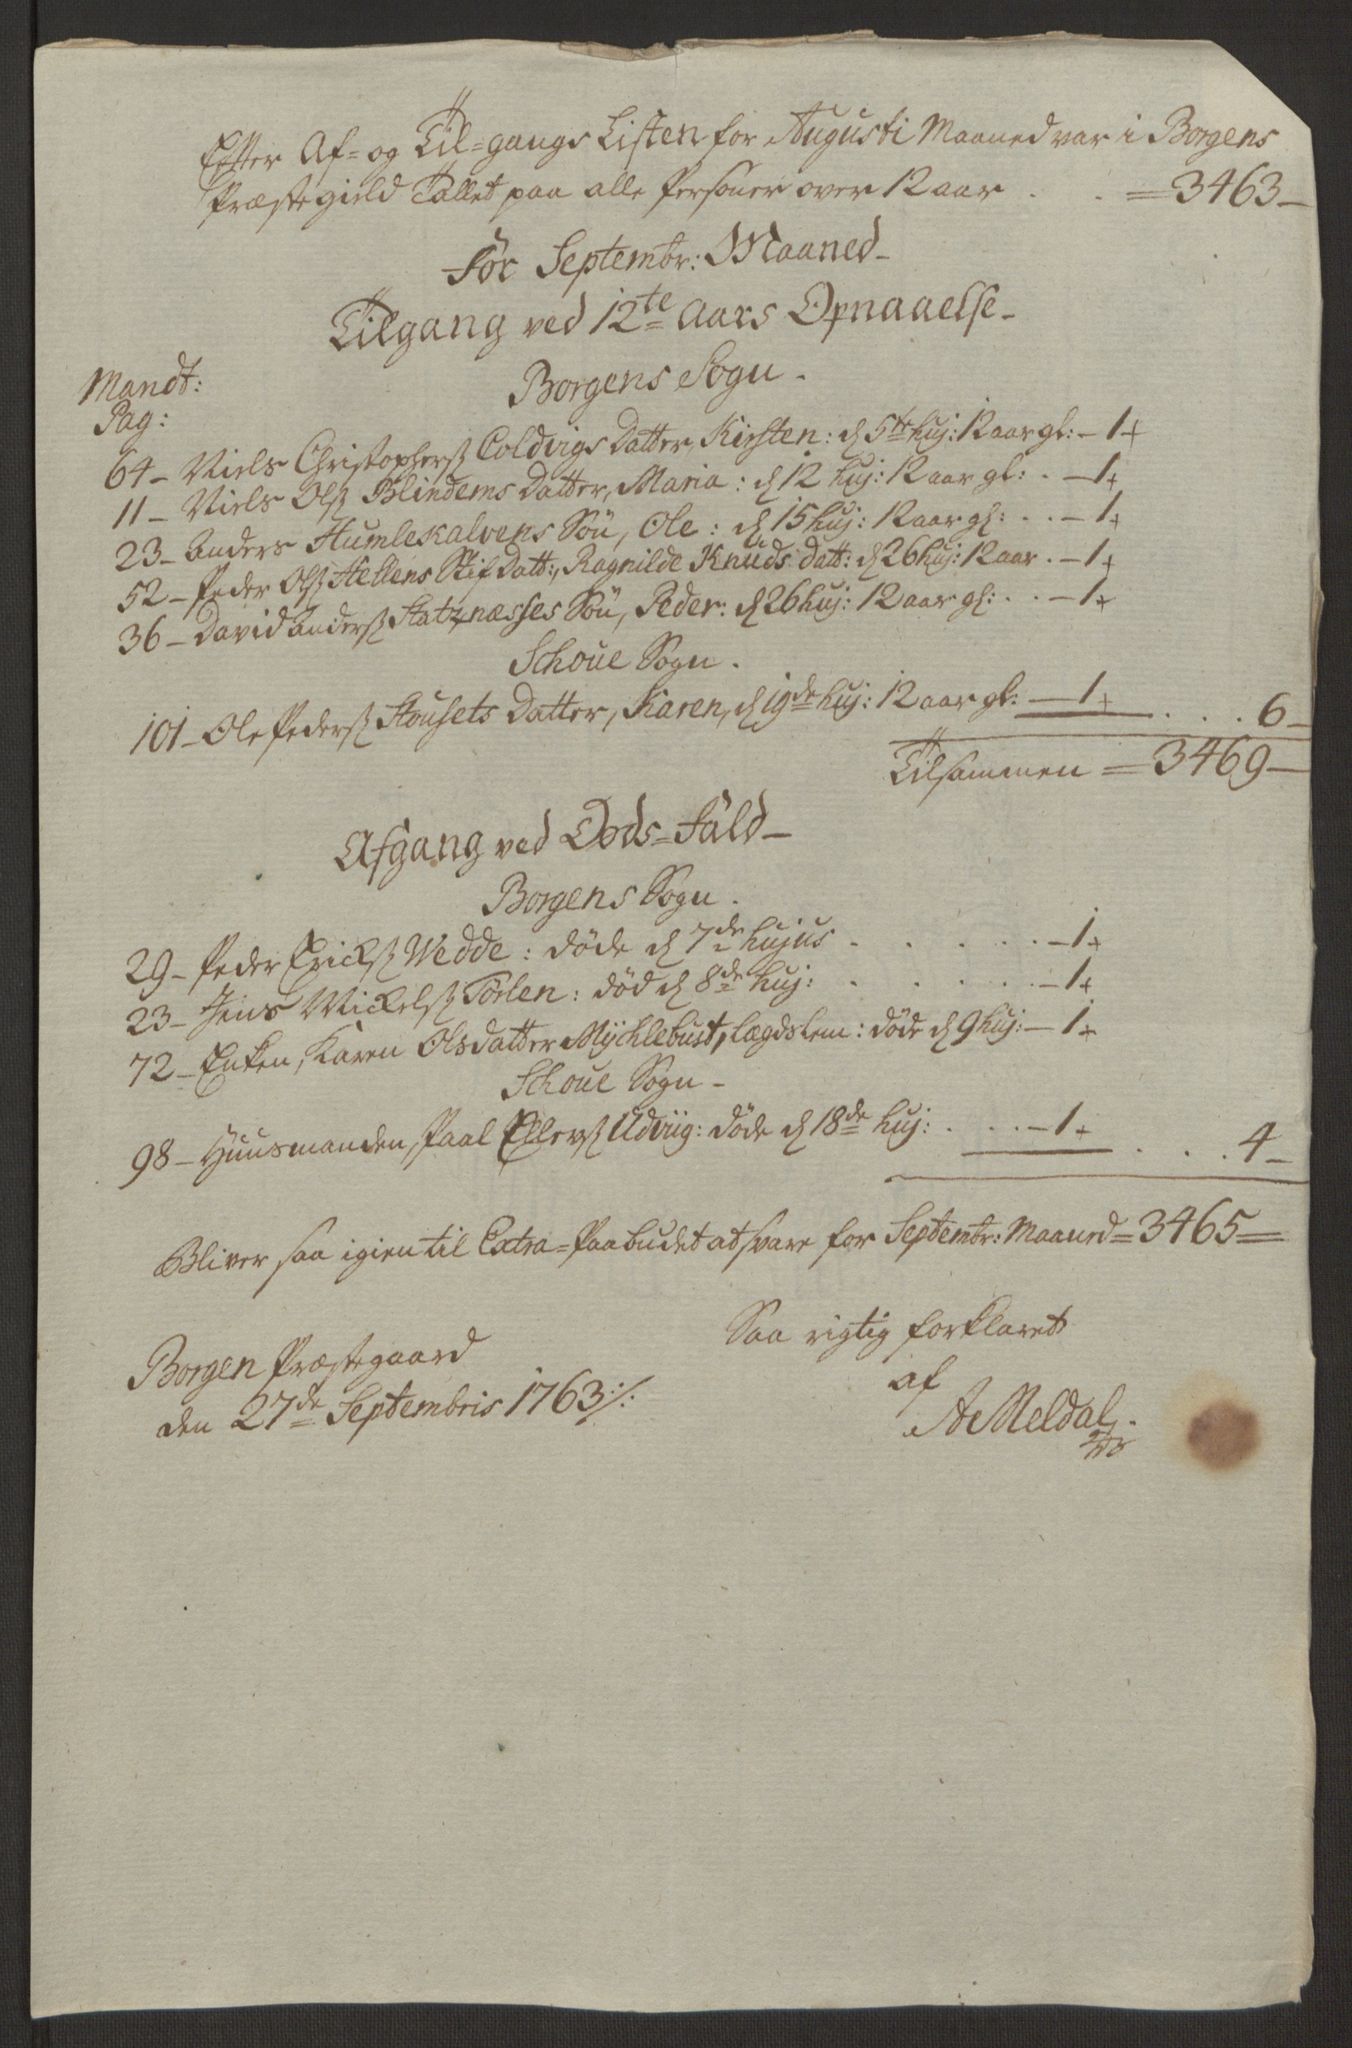 Efter Af= og Til=gangs Listen for Augusti Maaned var i Borgens
Præstegield Tallet paa alle Personer over 12 aar . . =3463_
For Septembr: Maaned_
Tilgang ved 12te Aars Opnaaelse_
Mandt:
Pag:
Borgens Sogn.
64_ Niels Christophers Coldvigs Datter, Kirsten: d 5te huj: 12 aar gl: _1
11_ Niels Ols Blindems Datter, Maria: d 12 huj: 12 aar gl: . _1
23_ Anders Humlekalvens Søn, Ole: d 15 huj: 12 aar gl: . . _1
52_ Peder Ols Hellens Stif Datt:, Ragnilde Knuds datt: d 26 huj: 12 aar . _1
36_ David Anders Statznæsses Søn, Peder: d 26 huj: 12 aar gl: . . _1
Schoue Sogn.
101_ Ole Peders Stousets Datter, Karen, d 19de huj: 12 aar gl: _1 . . . 6_
Tilsammen =3469_
Afgang ved Døds=Fald_
Borgens Sogn.
29_ Peder Ericks Wedde: døde d 7de hujus . . . . . _1
23_ Jens Nickels Torlen: død d 8de huj: . . . . . _1
72_ Enken, Karen Olsdatter Mychlebust, Lægdslem: døde d 9 huj: _1
Schoue Sogn_
98_ Huusmanden, Paal Ellers Udviig: døde d 18de huj: . . . _1 . . . 4_
Bliver saa igien til Extra=Paabudet at svare for Septembr: Maaned =3465=
Saa rigtig forklaret
Borgen Præstegaard
af
den 27de Septembris 1763 ./.
A Meldal.